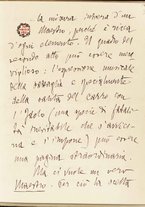 la misura intiera d'un
Maestro, poiché è ricca
d'ogni elemento. Il quadro del
secondo atto può essere mera-
viglioso. L'espressione musicale
della battaglia e specialmente
della carità del carro con
l'Isola (una specie di fatali-
tà che s'avvicina
e s'impone) può essere
una pagina straordinaria.
Ma ci vuole un vero
Maestro. Per ciò la scelta